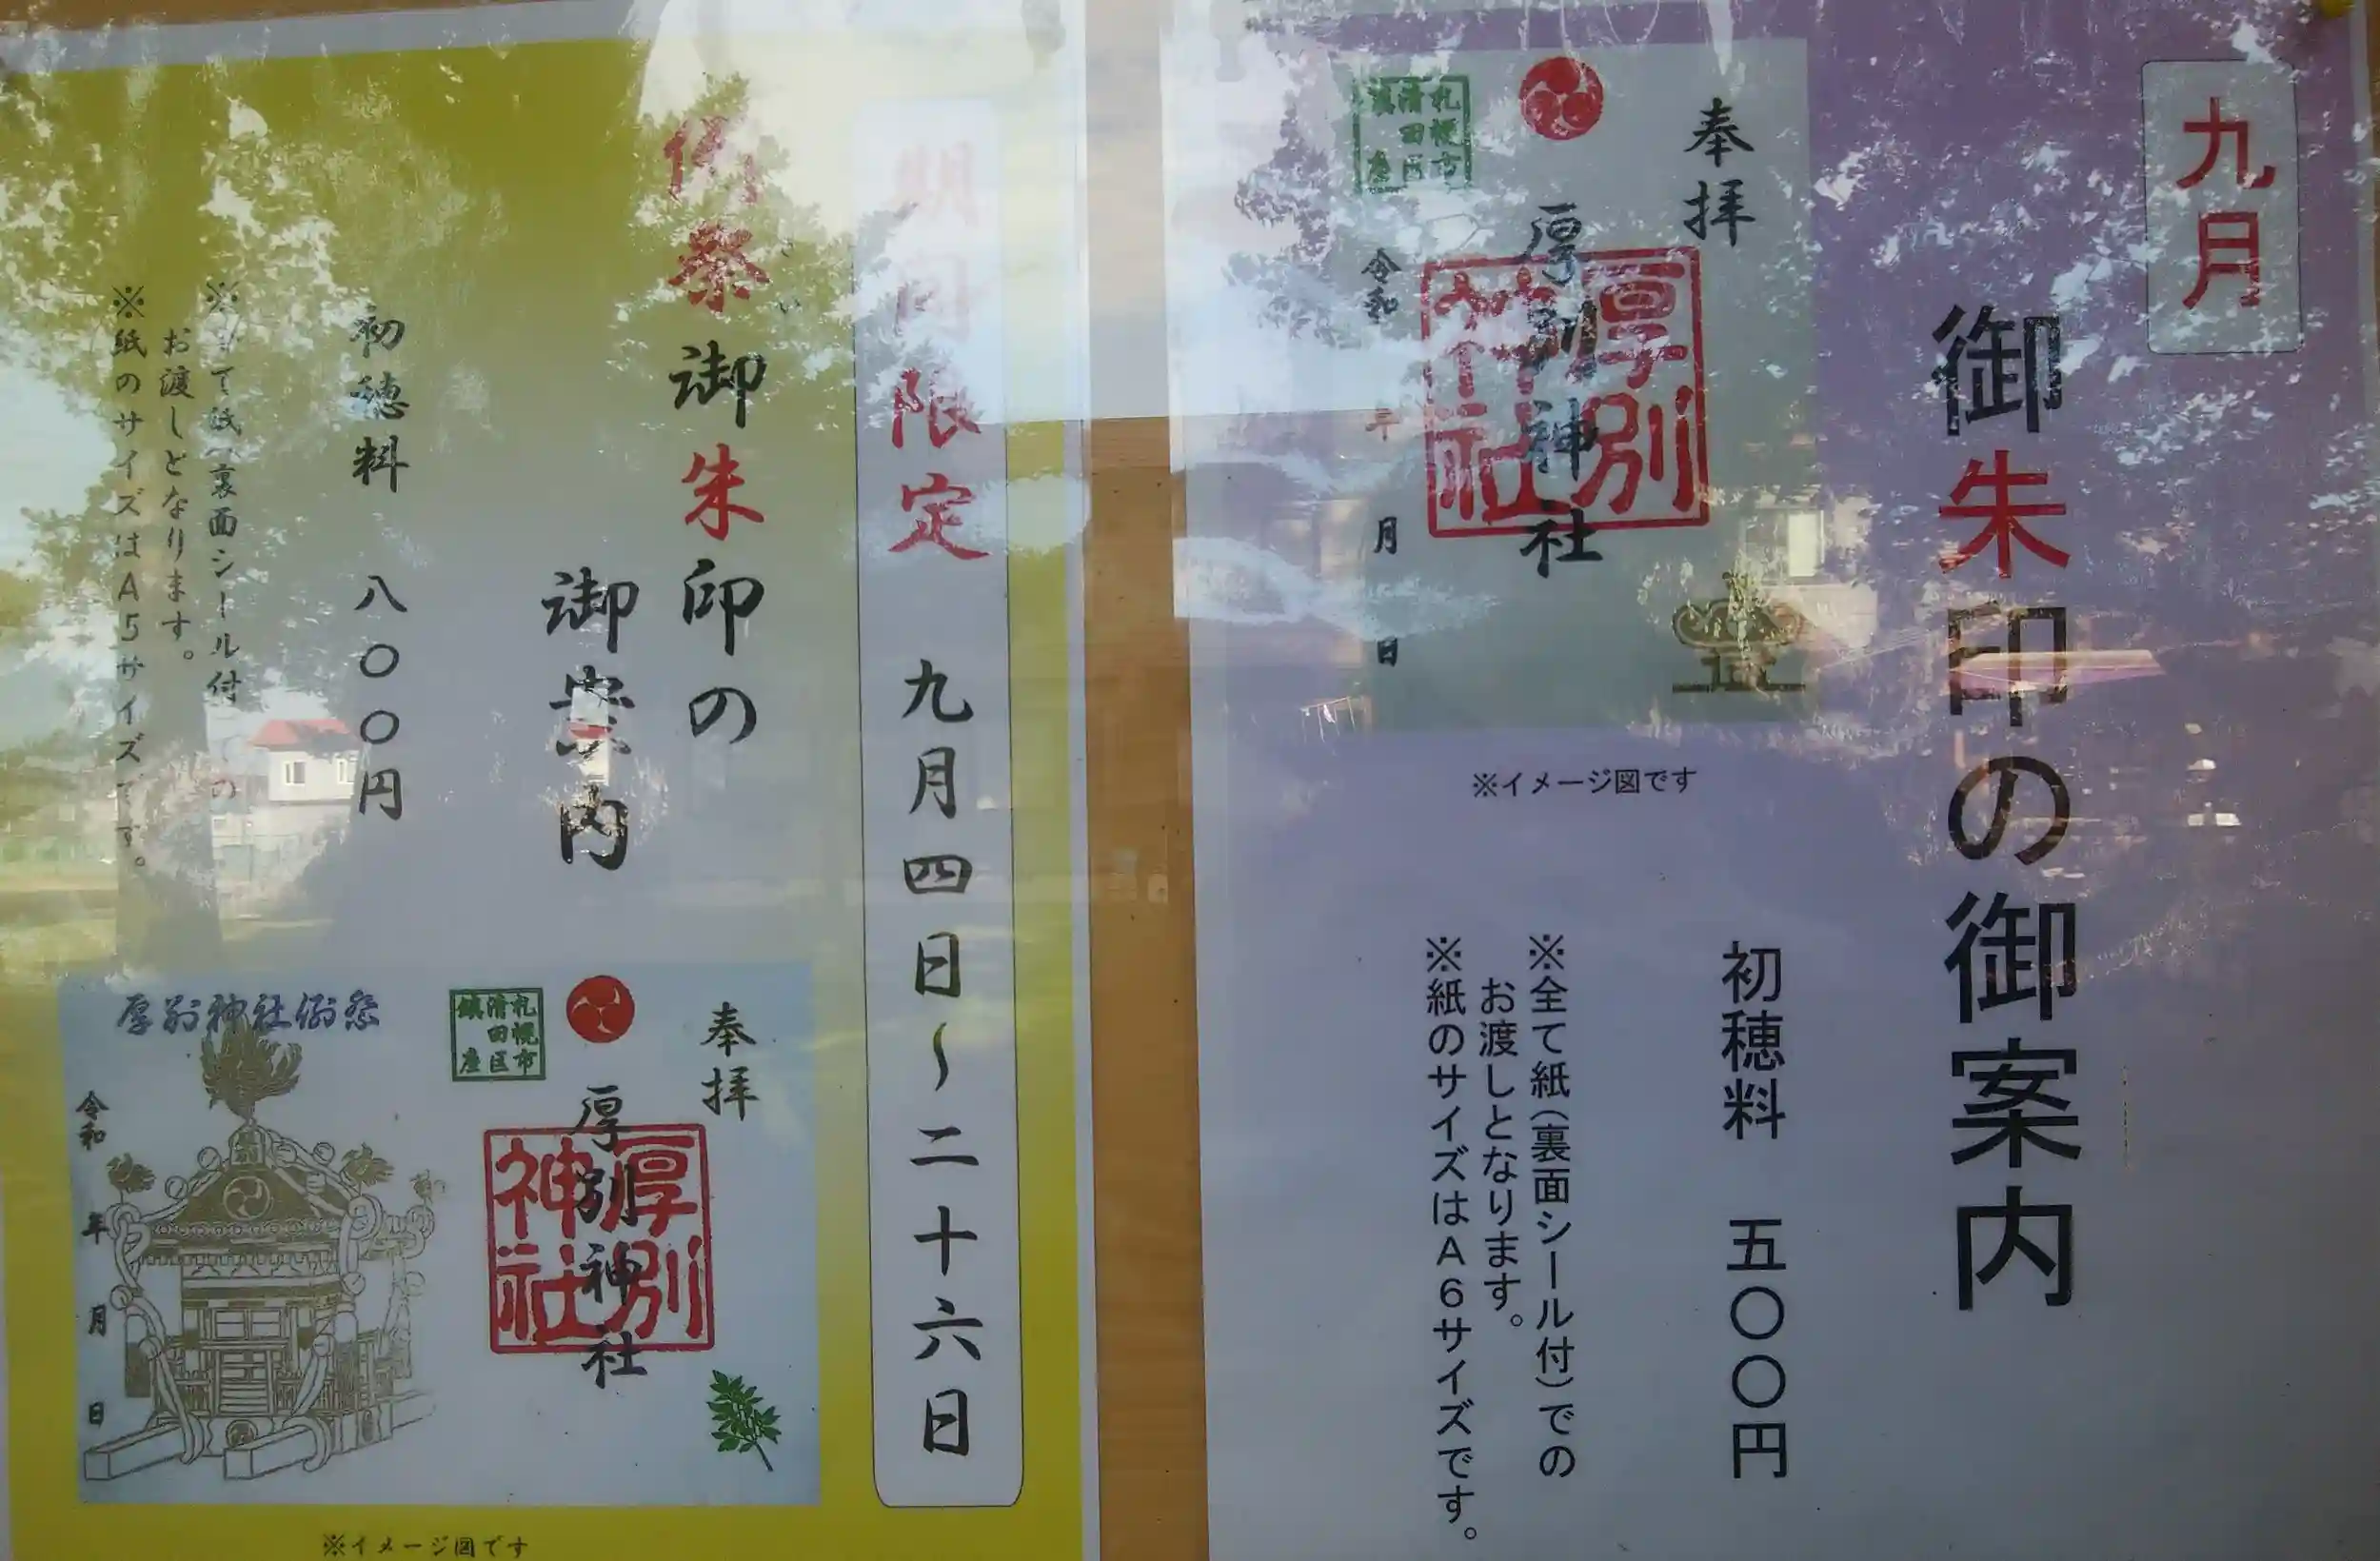 九月
御朱印の御案内
奉拝
厚別神社
厚別
神社
札幌市
清田区
鎮座
令和
年
月
日
※イメージ図です
初穂料 五〇〇円
※全て紙(裏面シール付)での
お渡しとなります。
※紙のサイズはA6サイズです。
期間限定 九月四日〜二十六日
例祭御朱印の
御案内
初穂料 八〇〇円
※全て紙(裏面シール付)での
お渡しとなります。
※紙のサイズはA5サイズです。
奉拝
厚別神社
厚別
神社
札幌市
清田区
鎮座
厚別神社例祭
令和
年
月
日
※イメージ図です